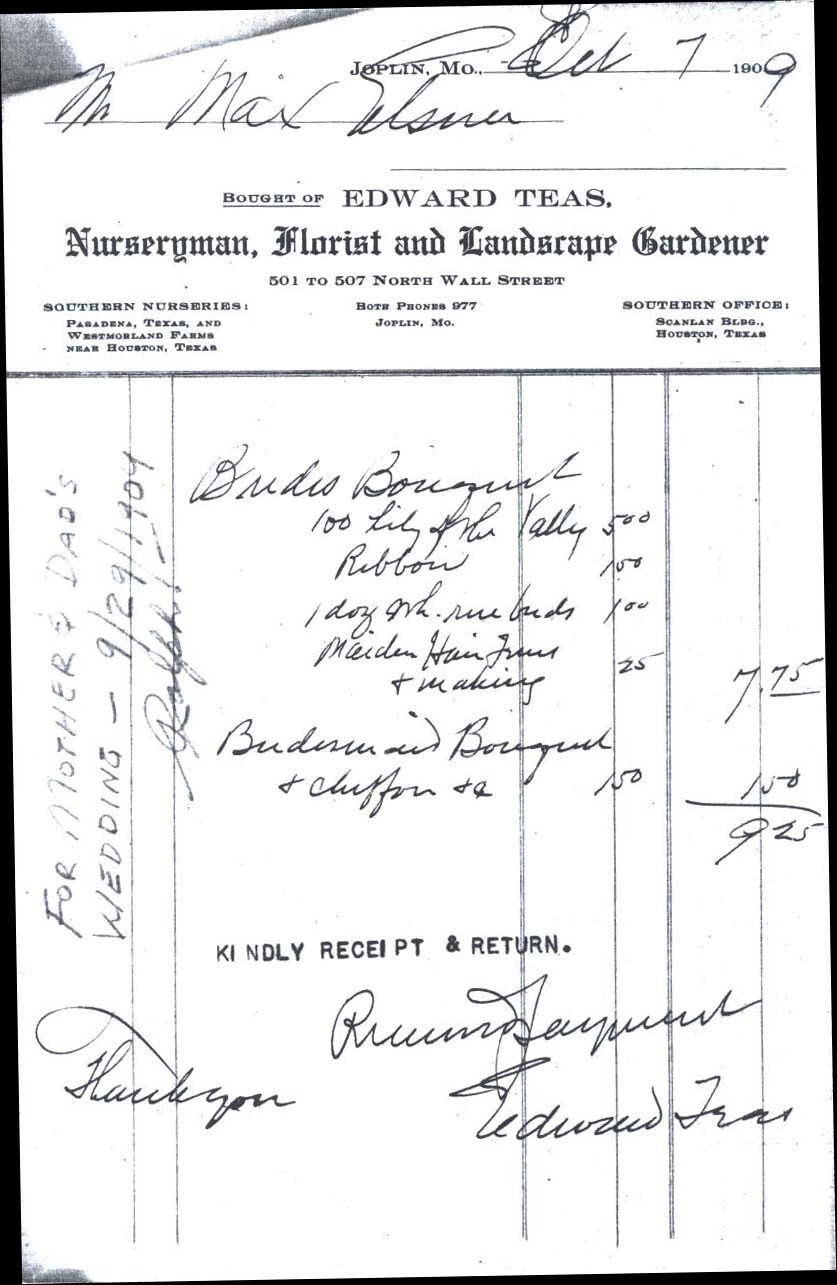 Joplin, Mo., Oct 7 1909
Mr Max Elsner
Bought of EDWARD TEAS,
Nurseryman, Florist and Landscape Gardener
501 to 507 North Wall Street
SOUTHERN NURSERIES:
Pasadena, Texas, and
Westmorland Farms
near Houston, Texas
Both Phones 977
Joplin, Mo.
SOUTHERN OFFICE:
Scanlan Bldg.,
Houston, Texas
Brides Bouquet
100 Lily of the Valley 500
Ribbon 150
1 doz Wh. rose buds 100
Maiden Hair Ferns
& making 25 7.75
Bridesmaid Bouquet
& chiffon &c 150 150
925
FOR MOTHER & DAD'S
WEDDING — 9/29/1909
Ralph
KINDLY RECEIPT & RETURN.
Received Payment
Thank you
Edward Teas